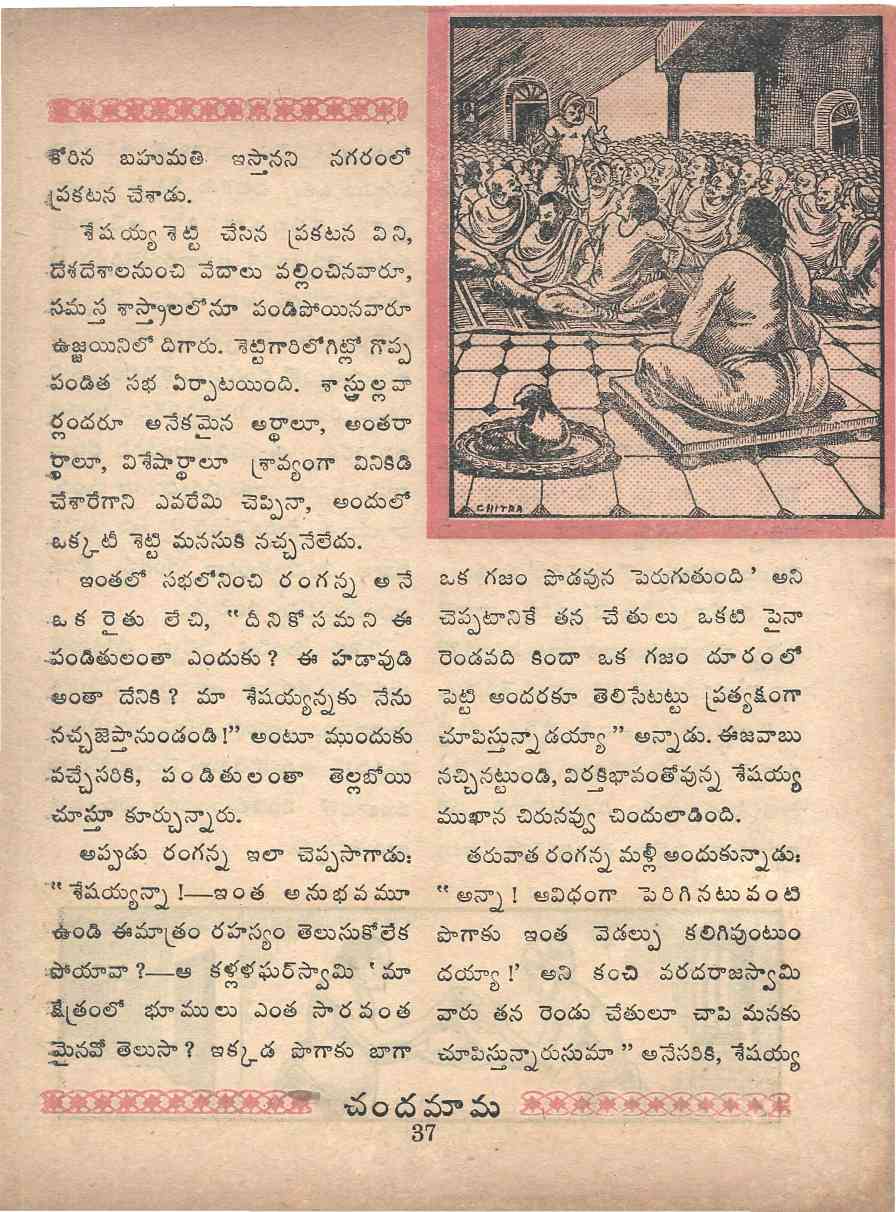 కోరిన బహుమతి ఇస్తానని నగరంలో
ప్రకటన చేశాడు.
శేషయ్యశెట్టి చేసిన ప్రకటన విని,
దేశదేశాలనుంచి వేదాలు వల్లించినవారూ,
సమస్త శాస్త్రాలలోనూ పండిపోయినవారూ
ఉజ్జయినిలో దిగారు. శెట్టిగారిలోగిట్లో గొప్ప
పండిత సభ ఏర్పాటయింది. శాస్త్రుల్లవా
ర్లందరూ అనేకమైన అర్థాలూ, అంతరా
ర్థాలూ, విశేషార్థాలూ శ్రావ్యంగా వినికిడి
చేశారేగాని ఎవరేమి చెప్పినా, అందులో
ఒక్కటీ శెట్టి మనసుకి నచ్చనేలేదు.
ఇంతలో సభలోనించి రంగన్న అనే
ఒక రైతు లేచి, “దీనికోసమని ఈ
పండితులంతా ఎందుకు? ఈ హడావుడి
అంతా దేనికి? మా శేషయ్యన్నకు నేను
నచ్చజెప్తానుండండి!” అంటూ ముందుకు
వచ్చేసరికి, పండితులంతా తెల్లబోయి
చూస్తూ కూర్చున్నారు.
అప్పుడు రంగన్న ఇలా చెప్పసాగాడు:
“శేషయ్యన్నా!—ఇంత అనుభవమూ
ఉండి ఈమాత్రం రహస్యం తెలుసుకోలేక
పోయావా?—ఆ కళ్లళఘర్‌స్వామి ‘మా
క్షేత్రంలో భూములు ఎంత సారవంత
మైనవో తెలుసా? ఇక్కడ పొగాకు బాగా
CHITRA
ఒక గజం పొడవున పెరుగుతుంది’ అని
చెప్పటానికే తన చేతులు ఒకటి పైనా
రెండవది కిందా ఒక గజం దూరంలో
పెట్టి అందరకూ తెలిసేటట్టు ప్రత్యక్షంగా
చూపిస్తున్నాడయ్యా” అన్నాడు. ఈజవాబు
నచ్చినట్టుండి, విరక్తిభావంతోవున్న శేషయ్య
ముఖాన చిరునవ్వు చిందులాడింది.
తరువాత రంగన్న మళ్లీ అందుకున్నాడు:
“అన్నా! ఆవిధంగా పెరిగినటువంటి
పొగాకు ఇంత వెడల్పు కలిగివుంటుం
దయ్యా!’ అని కంచి వరదరాజస్వామి
వారు తన రెండు చేతులూ చాపి మనకు
చూపిస్తున్నారుసుమా” అనేసరికి, శేషయ్య
చందమామ
37